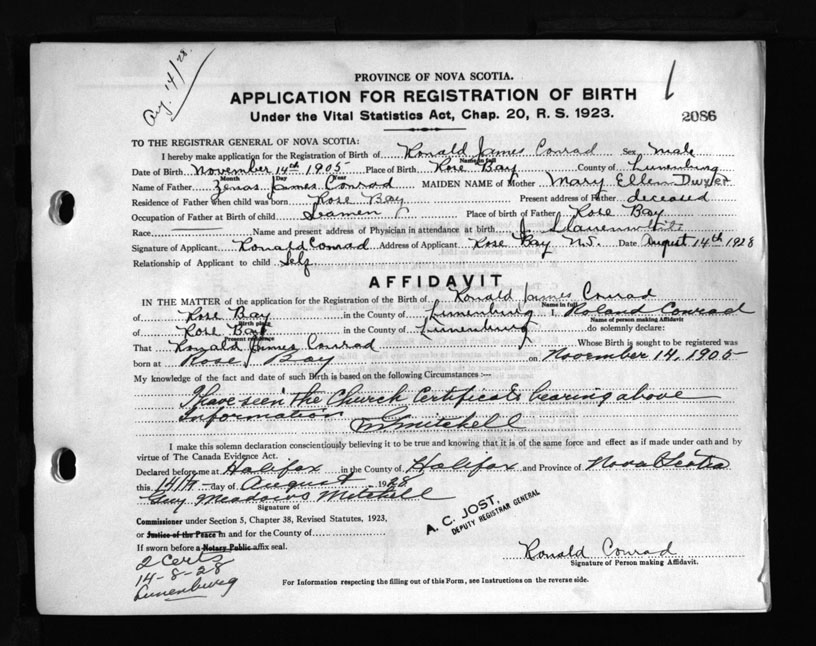 Aug. 14/28.
PROVINCE OF NOVA SCOTIA.
APPLICATION FOR REGISTRATION OF BIRTH
Under the Vital Statistics Act, Chap. 20, R. S. 1923.
2086
TO THE REGISTRAR GENERAL OF NOVA SCOTIA:
I hereby make application for the Registration of Birth of Ronald James Conrad Sex male
Name in full
Date of Birth November 14th 1905 Place of Birth Rose Bay County of Lunenburg
Month Day Year
Name of Father Zenas James Conrad MAIDEN NAME of Mother Mary Ellen Dwyer
Residence of Father when child was born Rose Bay Present address of Father deceased
Occupation of Father at Birth of child Seamen Place of birth of Father Rose Bay
Race Name and present address of Physician in attendance at birth
Signature of Applicant Ronald Conrad Address of Applicant Rose Bay N.S. Date August 14th 1928
Relationship of Applicant to child Self
AFFIDAVIT
IN THE MATTER of the application for the Registration of the Birth of Ronald James Conrad
Name in full
of Rose Bay in the County of Lunenburg I, Roland Conrad
Birth place Name of person making Affidavit
of Rose Bay in the County of Lunenburg do solemnly declare:
Present residence
That Ronald James Conrad Whose Birth is sought to be registered was
born at Rose Bay on November 14, 1905
My knowledge of the fact and date of such Birth is based on the following Circumstances :—
I have seen the Church Certificate bearing above
Information
Mitchell
I make this solemn declaration conscientiously believing it to be true and knowing that it is of the same force and effect as if made under oath and by
virtue of The Canada Evidence Act.
Declared before me at Halifax in the County of Halifax and Province of Nova Scotia
this 14th day of August 1928
Guy Meadows Mitchell
Signature of
Commissioner under Section 5, Chapter 38, Revised Statutes, 1923,
or Justice of the Peace in and for the County of
If sworn before a Notary Public affix seal.
A. C. JOST,
DEPUTY REGISTRAR GENERAL
2 Certs
14-8-28
Lunenburg
Ronald Conrad
Signature of Person making Affidavit.
For Information respecting the filling out of this Form, see Instructions on the reverse side.